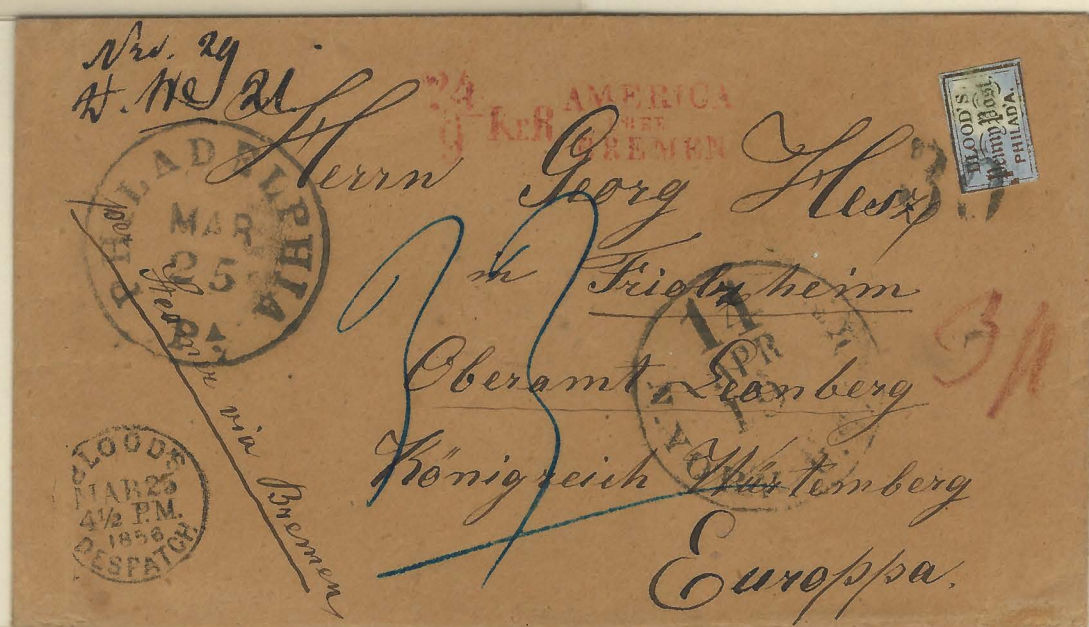 Nro. 29
21
24
9 KER AMERICA
BREMEN
BLOOD'S
Penny Post.
PHILAD'A.
PHILADELPHIA
MAR
25
PA
33
Herrn Georg Hesz
in Friolzheim
Oberamt Leonberg
Königreich Würtemberg
Europpa.
33
14
APR
N. YORK
via Bremen
BLOOD'S
MAR 25
4½ P.M.
1856
DESPATCH